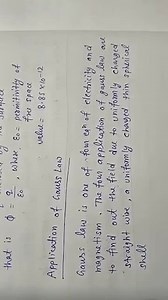 that is φ = q/ε0, where ε0 = permitivity of
free space
value = 8.85 × 10-12
Application of Gauss Law
Gauss law is one of four eqn of electricity and
magnetism The four application of gauss law are
to find out the field due to uniformly charged
straight wire, a uniformly charged thin spherical
shell